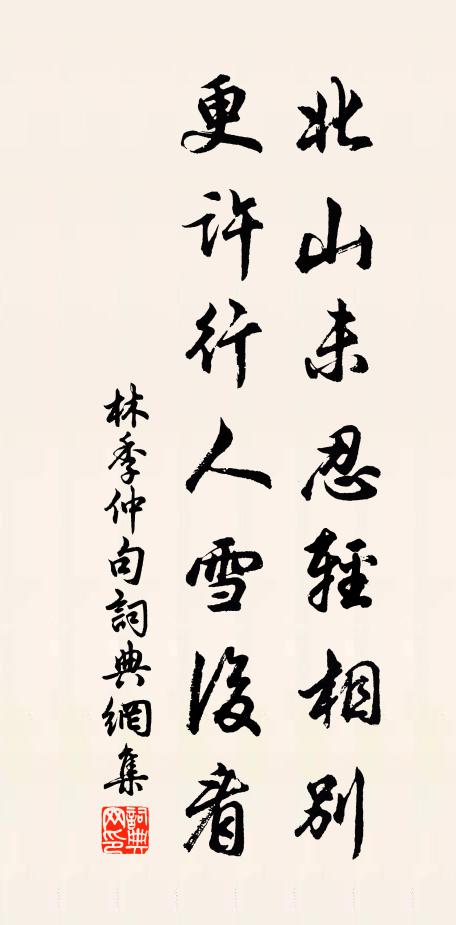 北山未忍輕相別
更許行人雪後看
林季仲句詞典網集
詞典網印